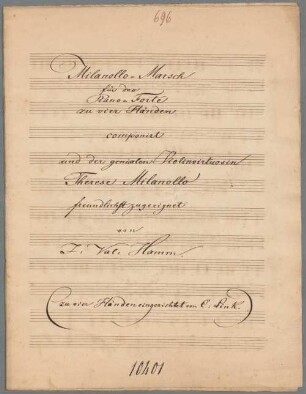 696
Milanollo-Marsch
für das
Piano-Forte
zu vier Händen
componirt
und der genialen Violinvirtuosin
Therese Milanollo
freundlichst zugeeignet
von
J. Val. Hamm
(zu vier Händen eingerichtet von C. Link.)
10401